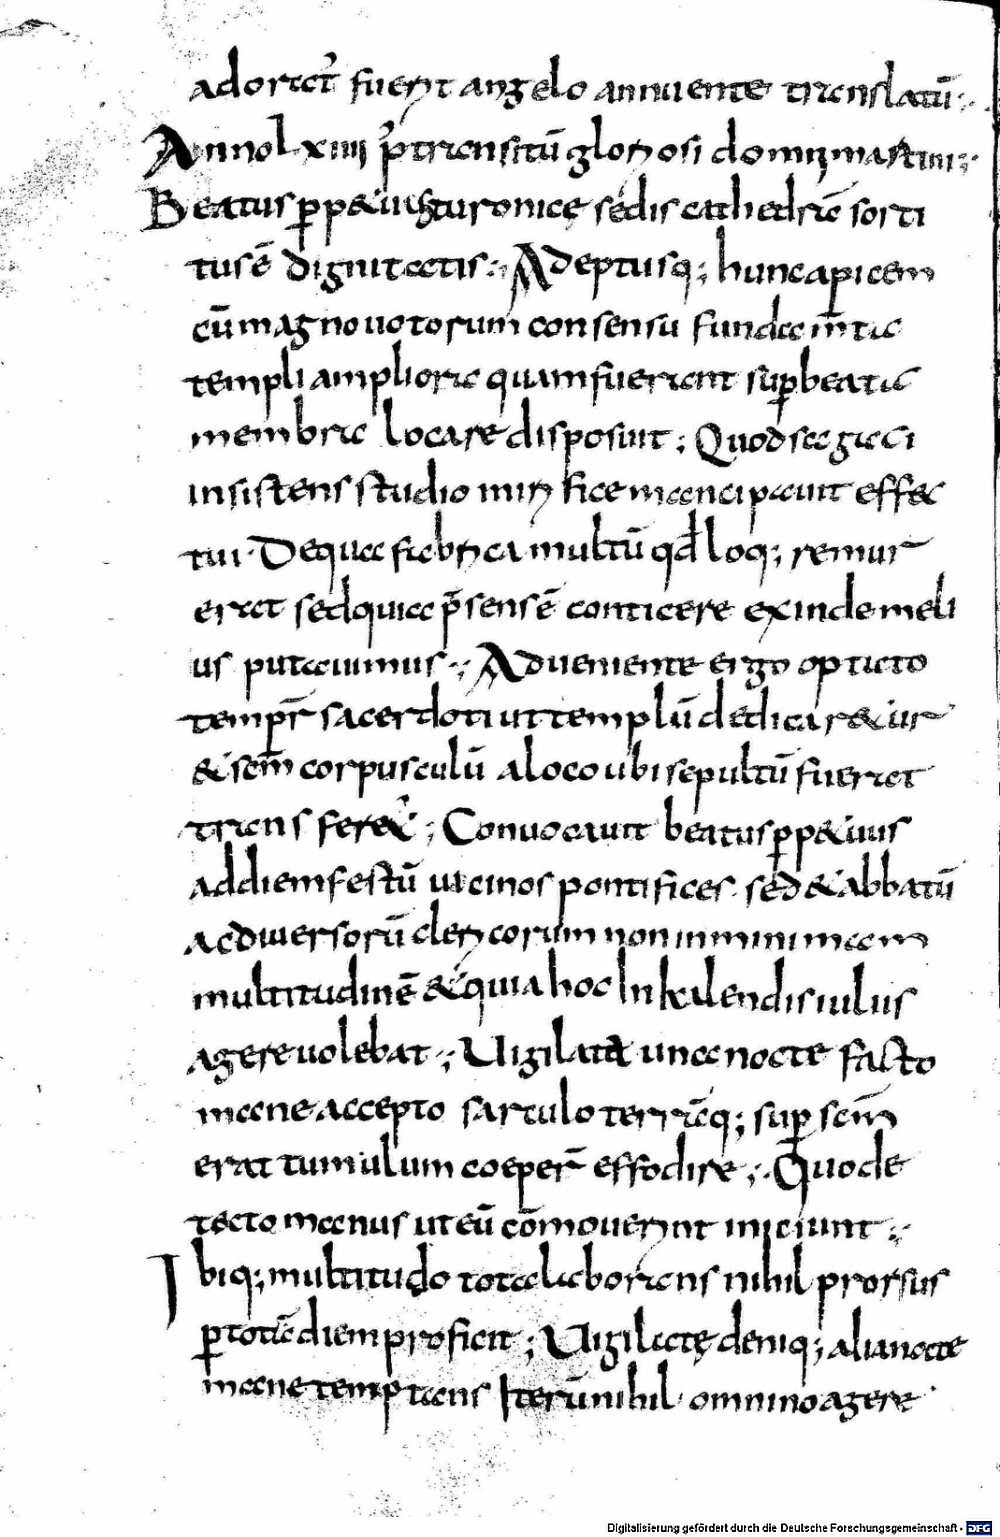 adoret᷒ fuerit angelo annuente translatū:.
Anno lxiiii p᷒ transitū gloriosi domni martini:.
Beatus ꝑpetuus turonicę sedis cathedrā sorti
tus ē dignitatis:. Adeptusq; hunc apicem
cū magno uotorum consensu fundam̄ta
templi ampliora quam fuerant suꝑ beata
membra locare disposuit; Quod sagaci
insistens studio mirifice mancipauit effec
tui. De qua fabrica multū qđ loq; remur
erat sed quia p̄sens ē conticere exinde meli
us putauimus:. Adueniente ergo optato
tempr̄ sacerdoti ut templū dedicaretur
& sc̄m corpusculū a loco ubi sepultū fuerat
transferet᷒; Conuocauit beatus ꝑpetuus
ad diem festū uicinos pontifices. sed & abbatū
ac diuersorū clericorum non minimam
multitudinē & quia hoc In kalendis iulius
agere uolebat; Uigilata una nocte facto
mane accepto sartulo terrāq; suꝑ sc̄m
erat tumulum coeper̄ effodire;. Quo de
tecto manus ut eū cōmouerint iniciunt:.
Ibiq; multitudo tota laborans nihil prorsus
ꝑ totā diem proficit; Uigilatę deniq; alia nocte
mane temptans Iterū nihil omnino agere
Digitalisierung gefördert durch die Deutsche Forschungsgemeinschaft - DFG